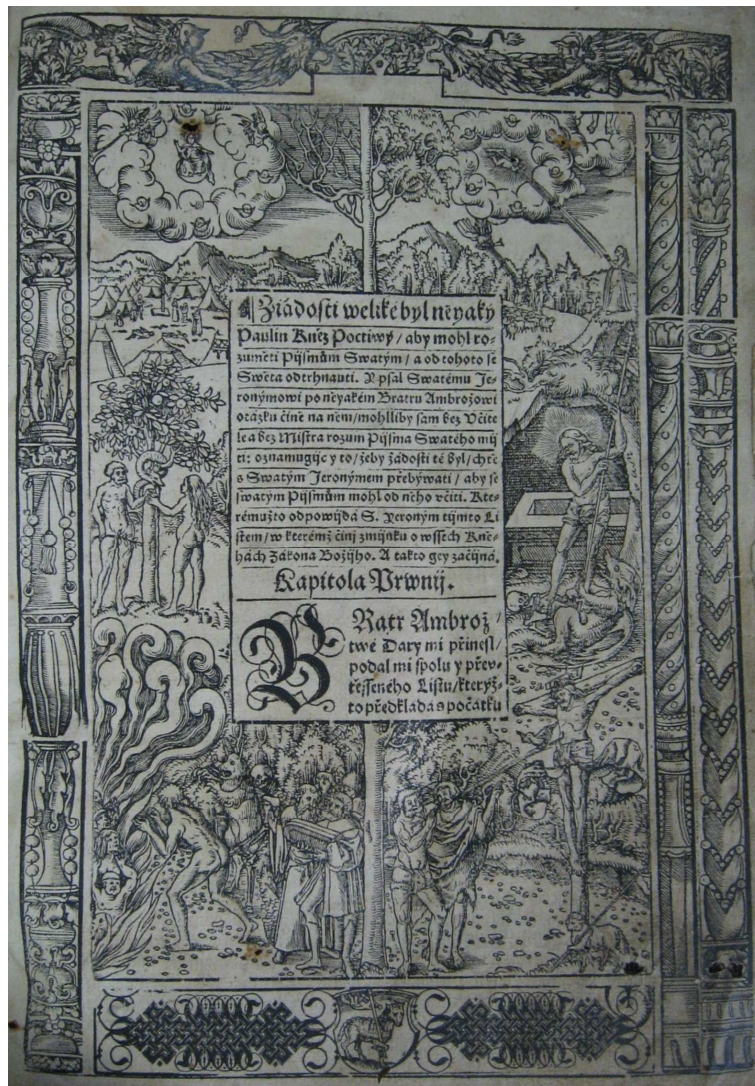 Ziádosti weliké byl něyaký
Paulin Kněz Poctiwý / aby mohl ro-
zuměti Pijsmům Swatým / a od tohoto se
Swěta odtrhnauti. Y psal Swatému Je-
ronýmowi po něyakém Bratru Ambrožowi
otázku čině na něm / mohlliby sám bez Včite-
le a bez Mistra rozum Pijsma Swatého mij-
ti: oznamugije y to / žeby žádosti té byl / chtě
s Swatým Jeronýmem přebýwati / aby se
swatým Pijsmům mohl od něho včiti. Kte-
rémužto odpowijdá S. Yeroným tijmto Li-
stem / w kterémž činij zmijnku o wssech Kně-
hách Zákona Božijho. A takto gey začijná.
Kapitola Prwnij.
BRatr Ambrož /
twé Dary mi přinesl /
podal mi spolu y přev-
těsseného Listu / kterýž-
to předkládá s počátku